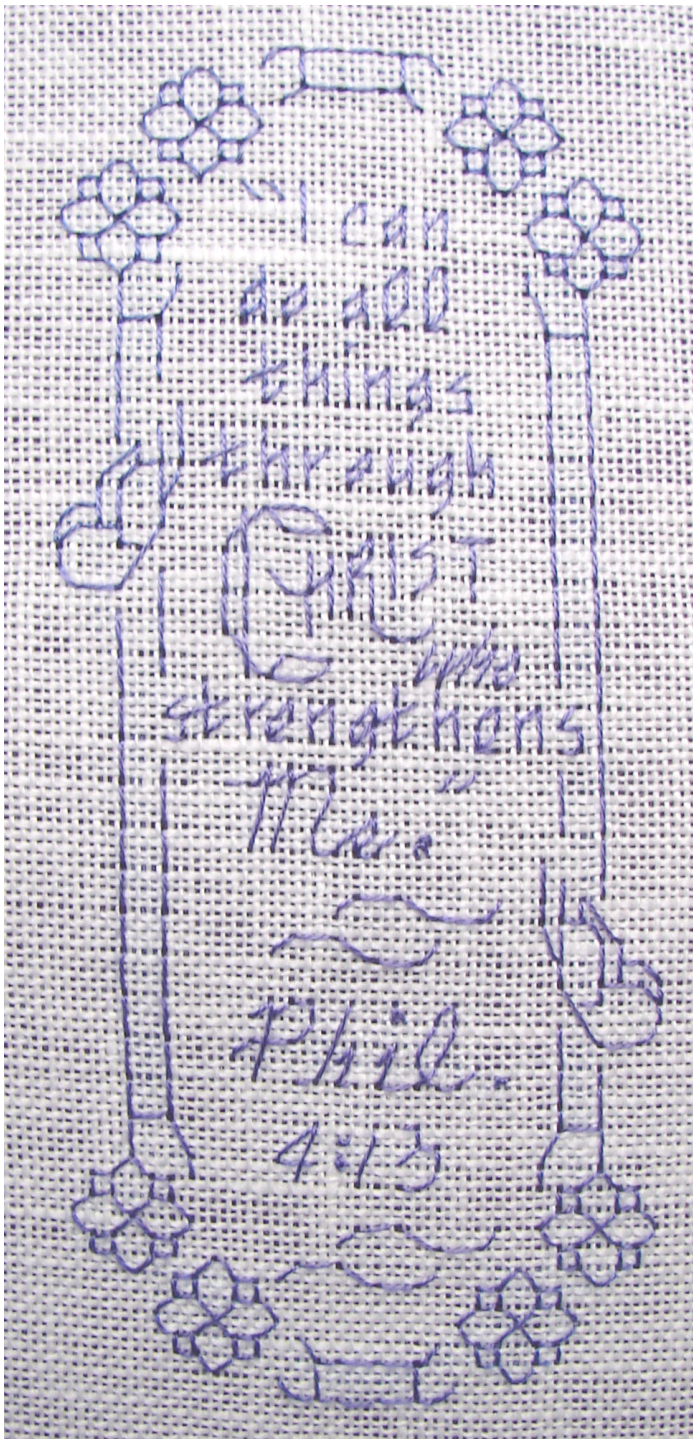 "I can
do all
things
through
CHRIST
who
strengthens
Me."
Phil.
4:13